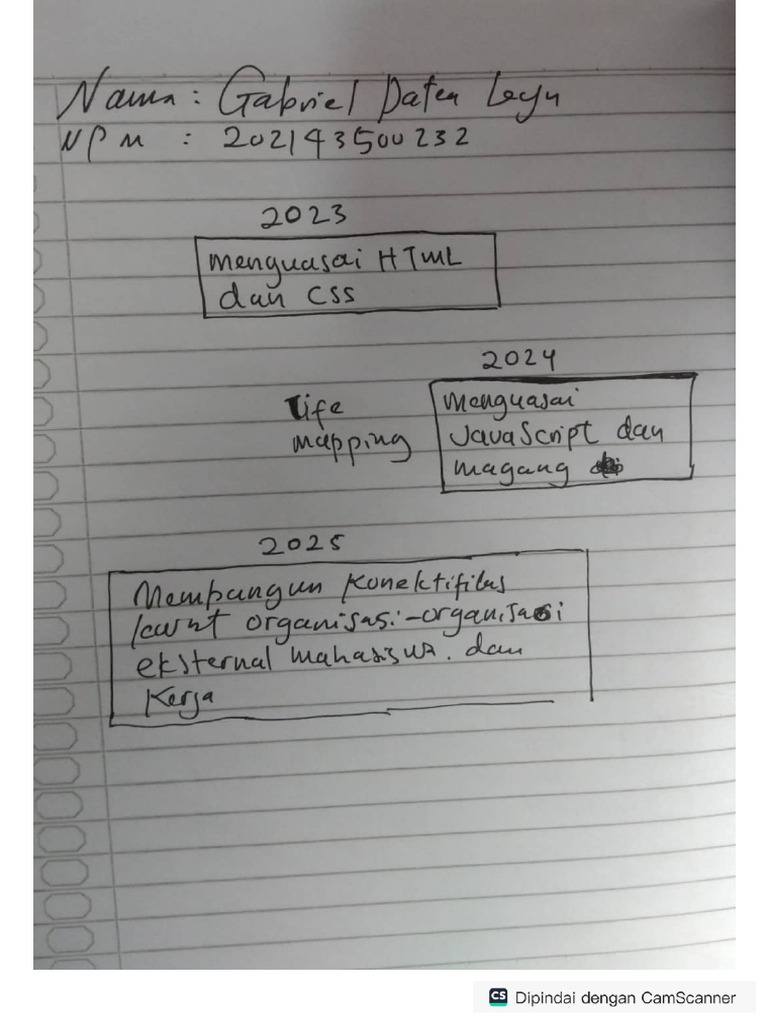 Nama : Gabriel Daten Leyn
NPM : 202143500232
2023
menguasai HTML
dan CSS
2024
Life
mapping
menguasai
JavaScript dan
magang
2025
Membangun Konektifitas
organisasi-organisasi
eksternal mahasiswa. dan
Kerja
CS Dipindai dengan CamScanner